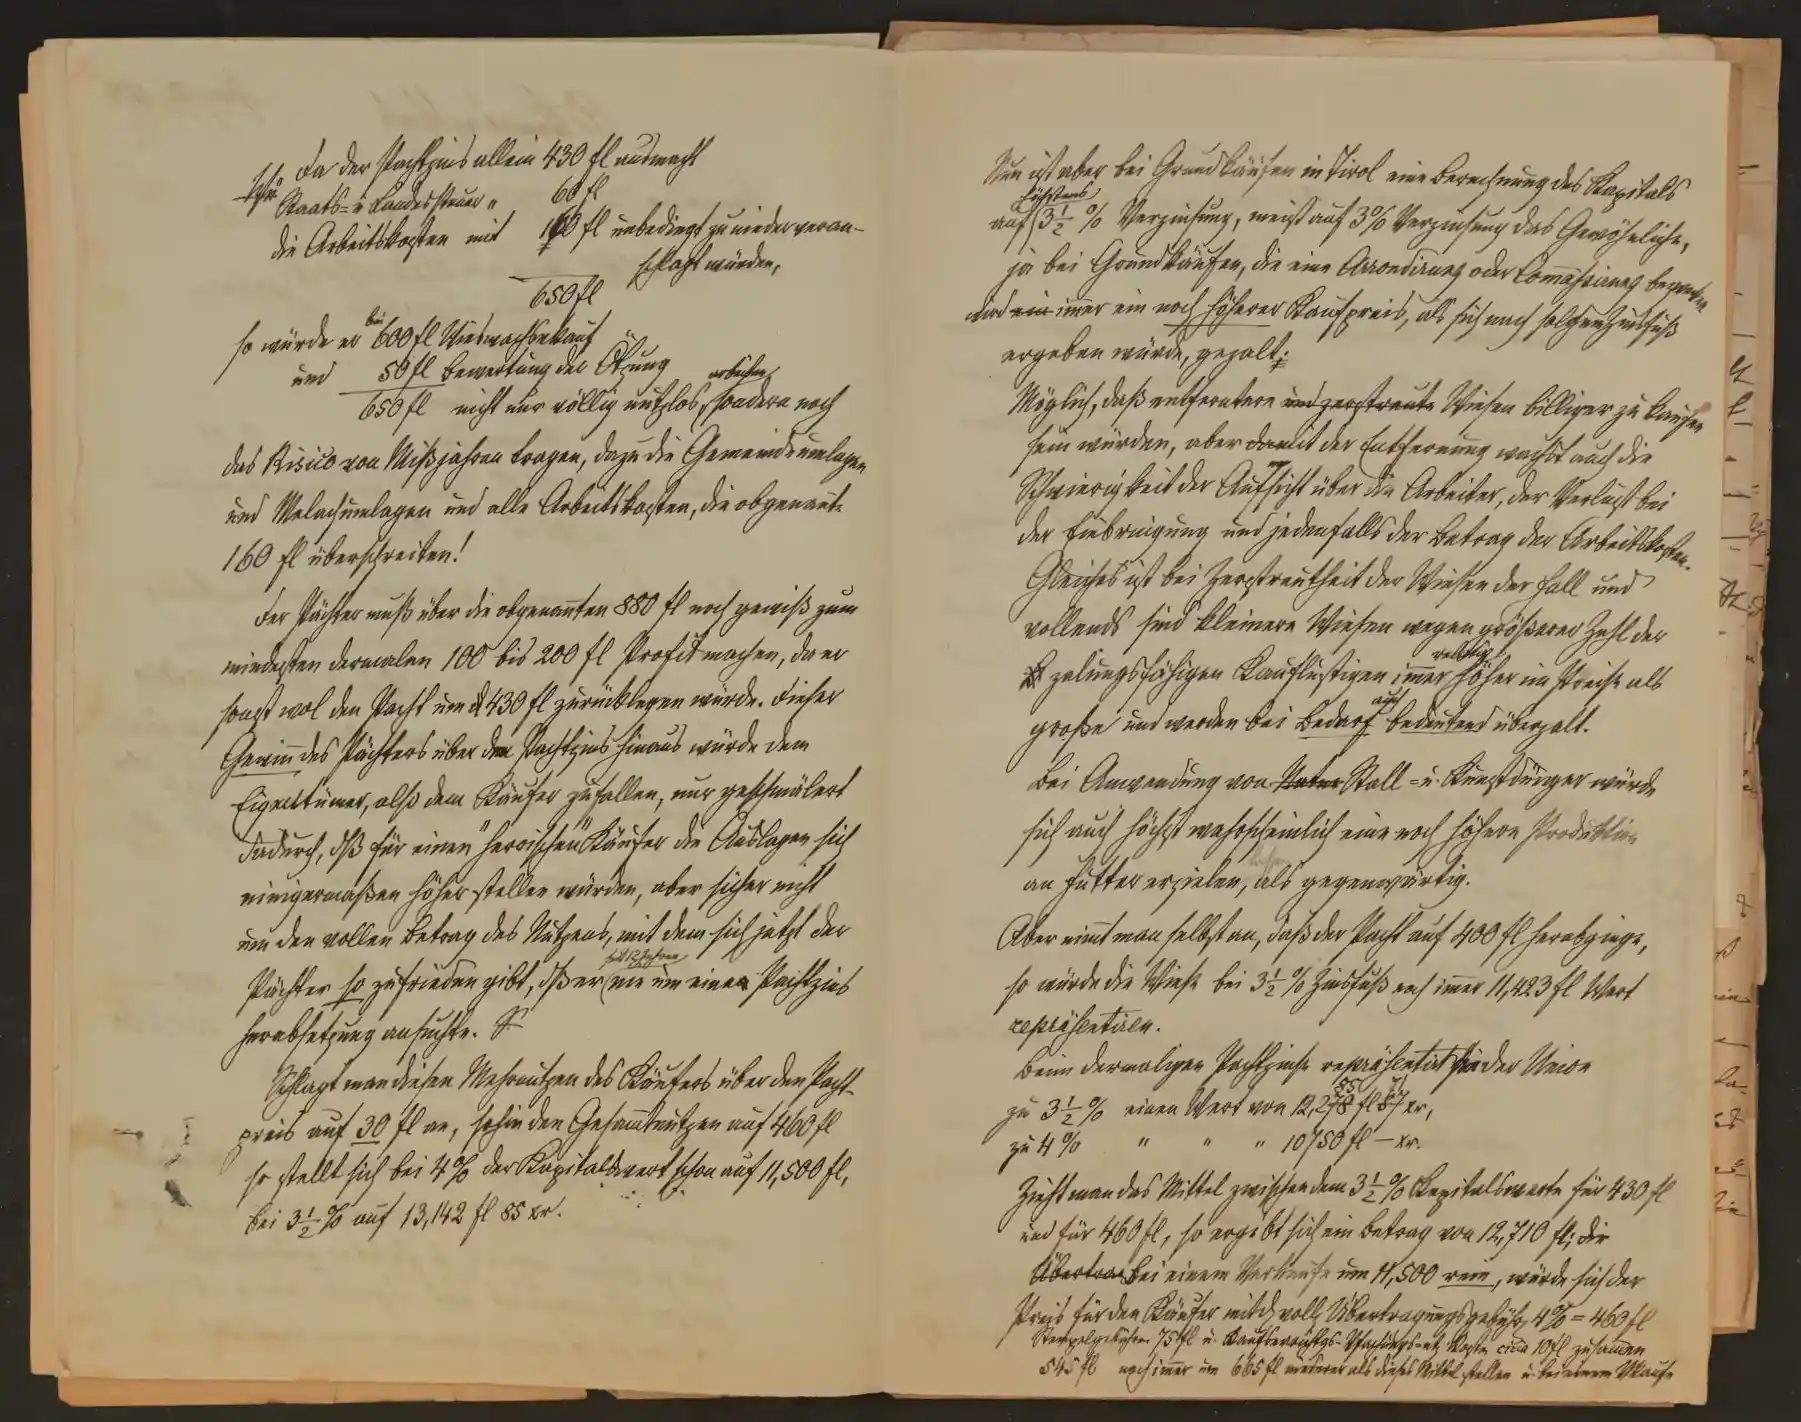 Da der Pachtzins allein 430 fl ausmacht
Staats- u Landessteuer " 60 fl
die Arbeitskosten mit 160 fl unbedingt zu nieder veran-
schlagt würden,
650 fl
so würde er bei 600 fl Wieswachsverkauf
und 50 fl Bewertung der Ätzung
650 fl nicht nur völlig nutzlos arbeiten, sondern noch
das Risico von Mißjahren tragen, dazu die Gemeindeumlagen
und Melachumlagen und alle Arbeitskosten, die obgenannte
160 fl überschreiten!
Der Pächter muß über die obgenannten 880 fl noch gewiß zum
mindesten dermalen 100 bis 200 fl Profit machen, da er
sonst wol den Pacht um 430 fl zurücklegen würde. Dieser
Gewinn des Pächters über den Pachtzins hinaus würde dem
Eigentümer, also dem Käufer zufallen, nur geschmälert
dadurch, dß für einen "heroischen" Käufer die Auslagen sich
einigermaßen höher stellen würden, aber sicher nicht
um den vollen Betrag des Nutzens, mit dem sich jetzt der
Pächter so zufrieden gibt, dß er seit 12 Jahren nie um einen Pachtzins
herabsetzung ansuchte.
Schlagt man diesen Mehrnutzen des Käufers über den Pacht-
preis auf 30 fl an, sohin den Gesammtnutzen auf 460 fl
so stellt sich bei 4% der Kapitalswert schon auf 11,500 fl,
bei 3 1/2 % auf 13,142 fl 85 xr.
Nun ist aber bei Grundkäufen in Tirol eine Berechnung des Kapitals
auf höchstens 3 1/2 % Verzinsung, meist auf 3% Verzinsung das Gewöhnliche,
ja bei Grundkäufen, die eine Arrondirung oder Commassirung bezwecken
wird ein immer ein noch höherer Kaufpreis, als sich nach solchem Zinsfuß
ergeben würde, gezalt.
Möglich, daß entferntere und zerstreute Wiesen billiger zu kaufen
sein würden, aber damit der Entfernung wachst auch die
Schwierigkeit der Aufsicht über die Arbeiter, der Verlust bei
der Einbringung und jedenfalls der Betrag der Arbeitskosten.
Gleiches ist bei Zerstreutheit der Wiesen der Fall und
vollends sind kleinere Wiesen wegen größerer Zahl der
zalungsfähigen Kauflustigen immer relativ höher im Preise als
große und werden bei Bedarf oft bedeutend überzalt.
Bei Anwendung von Natur Stall- u. Kunstdünger würde
sich auch höchst wahrscheinlich eine noch höhere Produktion
an Futter erzielen, als gegenwärtig.
Aber nimt man selbst an, daß der Pacht auf 400 fl herabginge,
so würde die Wiese bei 3 1/2 % Zinsfuß noch immer 11,423 fl Wert
repräsentiren.
Beim dermaligen Pachtzinse repräsentirt sie der Union
zu 3 1/2 % einen Wert von 12,285 fl 71 xr,
zu 4% " " " 10750 fl — xr.
Zieht man das Mittel zwischen dem 3 1/2 % Kapitalswerte für 430 fl
und für 460 fl, so ergibt sich ein Betrag von 12,710 fl; die
Übertrag bei einem Verkaufe um 11,500 rein, würde sich der
Preis für den Käufer mit d. voll. Übertragungsgebühr 4% = 460 fl
Stempelgebühren 75 fl u. Kaufsverachtgs- Kosten circa 10 fl zusammen
545 fl noch immer um 665 fl niederer als dieses Mittel stellen u. bei einem Verkaufe